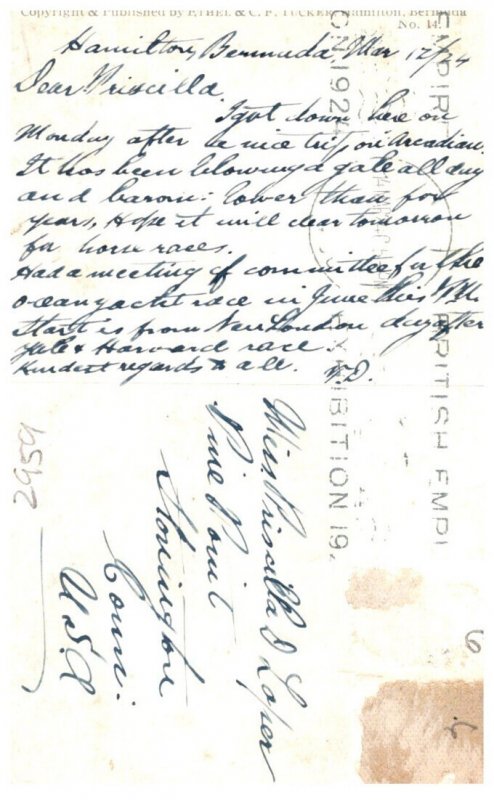 Copyright & Published by ETHEL & C. F. TUCKER, Hamilton, Bermuda
No. 14.
Hamilton, Bermuda, Mar 12/24
Dear Priscilla
I got down here on
Monday after a nice trip on Arcadian.
It has been blowing a gale all day
and barom: lower than for
years. Hope it will clear tomorrow
for horse races.
Had a meeting of committee for the
ocean yacht race in June this P.M.
Start is from New London day after
Yale & Harvard race.
Kindest regards to all. F.D.
Miss Priscilla D Loper
Pine Point
Stonington
Conn:
U.S.A
2959
6
BRITISH EMPI
EXHIBITION 19
EMPIRE
ON 1924